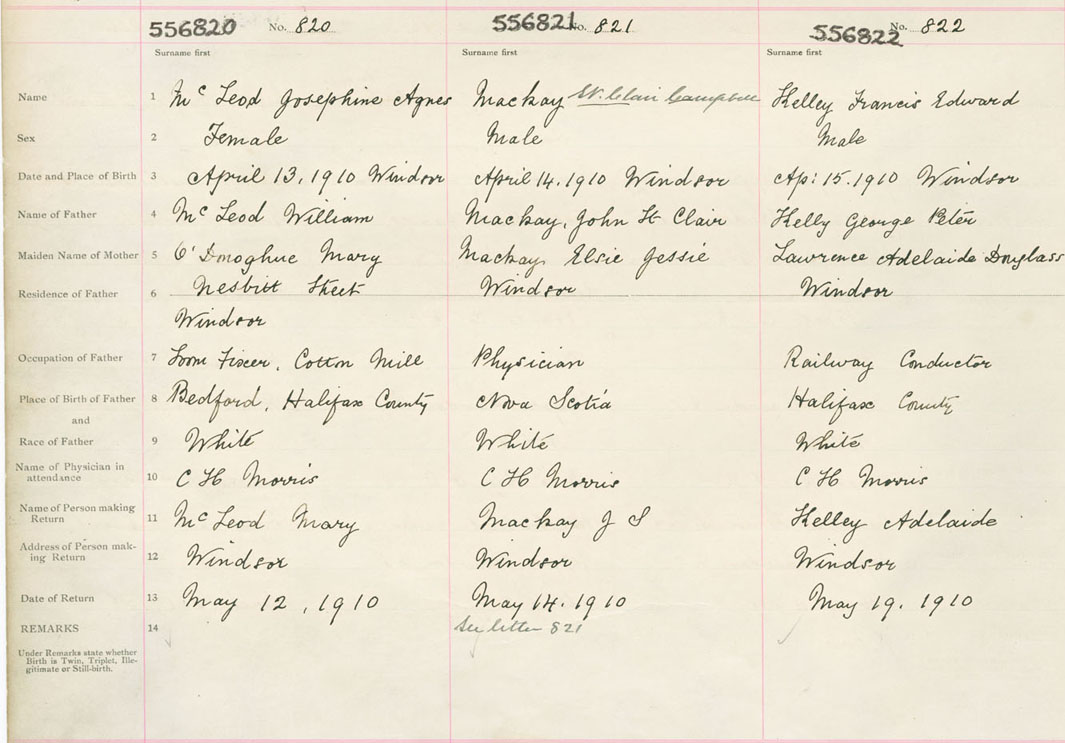 556820 No. 820 556821 No. 821 556822 No. 822
Surname first Surname first Surname first
Name 1 Mc Leod Josephine Agnes Mackay St. Clair Campbell Kelley Francis Edward
Sex 2 Female Male Male
Date and Place of Birth 3 April 13, 1910 Windsor April 14. 1910 Windsor Ap: 15. 1910 Windsor
Name of Father 4 Mc Leod William Mackay, John St Clair Kelly George Peter
Maiden Name of Mother 5 O'Donoghue Mary Mackay Elsie Jessie Lawrence Adelaide Douglass
Residence of Father 6 Nesbitt Street Windsor Windsor
Windsor
Occupation of Father 7 Loom Fixer, Cotton Mill Physician Railway Conductor
Place of Birth of Father 8 Bedford, Halifax County Nova Scotia Halifax County
and
Race of Father 9 White White White
Name of Physician in
attendance 10 C H Morris C H Morris C H Morris
Name of Person making
Return 11 Mc Leod Mary Mackay J S Kelley Adelaide
Address of Person mak-
ing Return 12 Windsor Windsor Windsor
Date of Return 13 May 12, 1910 May 14. 1910 May 19. 1910
REMARKS 14 See letter 821
Under Remarks state whether
Birth is Twin, Triplet, Ille-
gitimate or Still-birth.